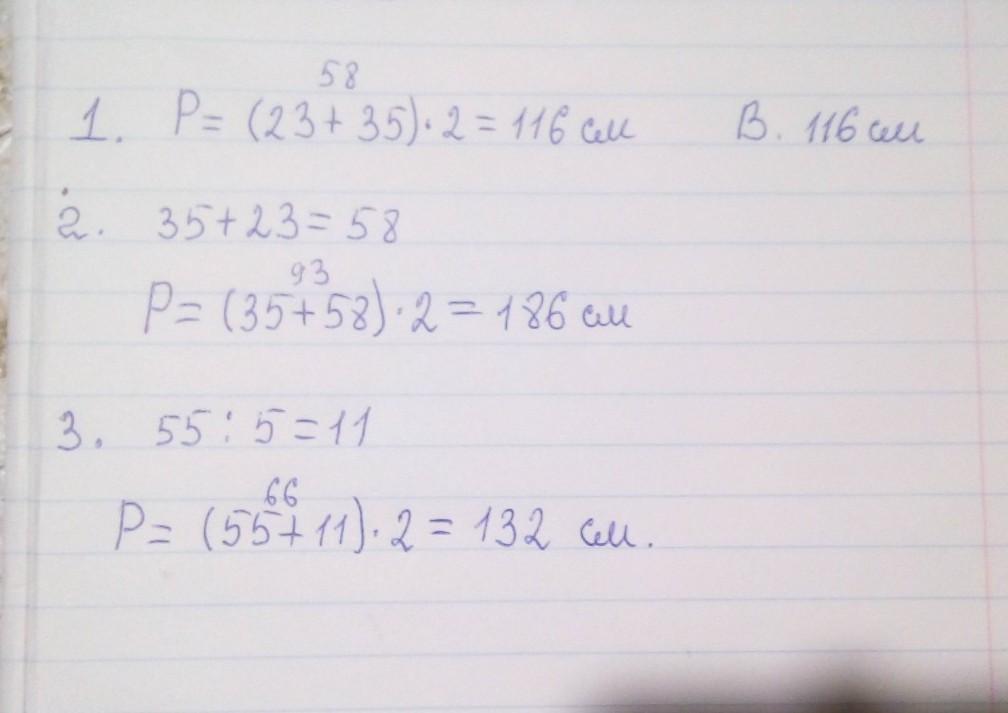 58
1. P= (23+35)·2=116 см В. 116 см
2. 35+23=58
93
P=(35+58)·2=186 см
3. 55:5=11
66
P= (55+11)·2=132 см.